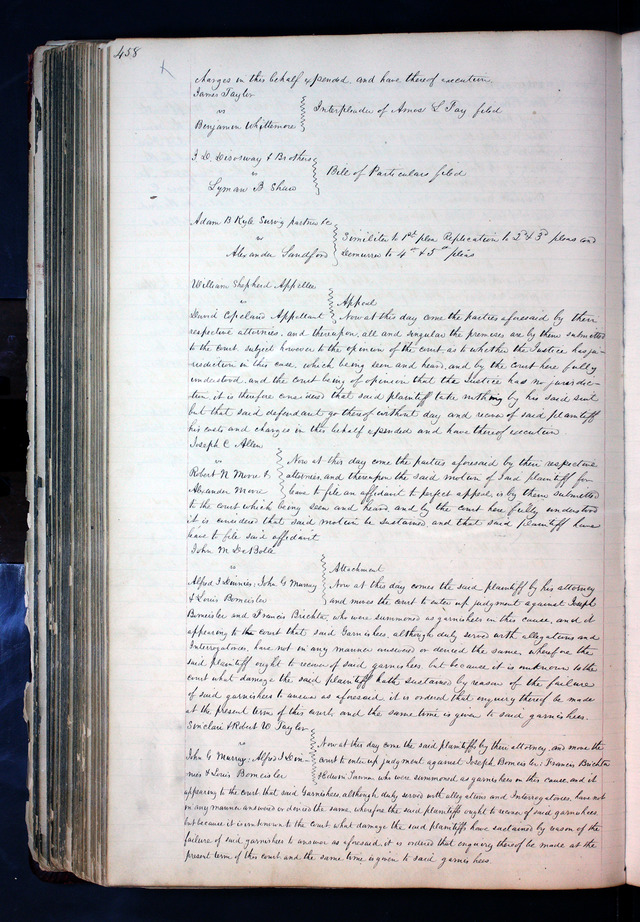 458
charges in this behalf expended, and have thereof execution.
James Tayler
vs
Benjamin Whittemore
Interpleader of Amos L Tay filed
J. D. Disosway & Brothers
vs
Lyman B Shaw
Bill of Particulars filed
Adam B Kyle Survig partner &c
vs
Alexander Sandford
Similiter to 1st plea Replication to 2d & 3d pleas and
Demurrer to 4th & 5th pleas
William Shepherd Appellee
vs
David Copeland Appellant
Appeal
Now at this day come the parties aforesaid by their
respective attornies, and thereupon all and singular the premises are by them submitted
to the court subject however to the opinion of the court, as to whether the Justice has ju-
risdiction in this case, which being seen and heard, and by the court here fully
understood, and the court being of opinion that the Justice has no jurisdic-
tion it is therefore considered that said plaintiff take nothing by his said suit
but that said defendant go thereof without day and recover of said plaintiff
his costs and charges in this behalf expended and have thereof execution
Joseph C Allen
vs
Robert N Moore &
Alexander Moore
Now at this day come the parties aforesaid by their respective
attornies, and thereupon the said motion of said plaintiff for
leave to file an affidavit to perfect appeal, is by them submitted
to the court which being seen and heard, and by the court here fully understood
it is considered that said motion be sustained and that said plaintiff have
leave to file said affidavit
John M DeBolle
vs
Alfred J Dinnies, John G Murray
& Louis Bomeisler
Attachment
Now at this day comes the said plaintiff by his attorney
and moves the court to enter up judgment against Joseph
Bomeisler and Francis Brichta, who were summoned as garnishees in this cause, and it
appearing to the court that said Garnishees, although duly served with allegations and
Interrogatories, has not in any manner answered or denied the same, wherefore the
said plaintiff ought to recover of said garnishees but because it is unknown to the
court what damage the said plaintiff hath sustained by reason of the failure
of said garnishees to answer as aforesaid, it is ordered that enquiry thereof be made
at the present term of this court, and the same time is given to said garnishees.
Sinclair & Robert W Taylor
vs
John G Murray, Alfred J Din-
nies & Louis Bomeisler
Now at this day come the said plaintiffs by their attorney, and move the
court to enter up judgment against Joseph Bomeisler, Francis Brichta
who were summoned as garnishees in this cause, and it
appearing to the court that said Garnishees, although duly served with allegations and Interrogatories, have not
in any manner answered or denied the same, wherefore the said plaintiffs ought to recover of said garnishees
but because it is unknown to the court what damage the said plaintiffs have sustained by reason of the
failure of said garnishees to answer as aforesaid, it is ordered that enquiry thereof be made at the
present term of this court and the same time is given to said garnishees.